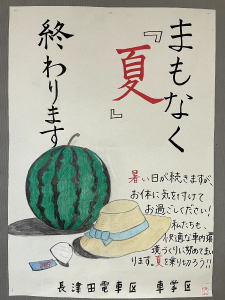 まもなく
『夏』
終わります
暑い日が続きますが、
お体に気を付けて
お過ごしください!
私たちも、
快適な車内環
境づくりに努めてまい
ります。夏を乗り切ろう!!
長津田電車区 車掌区